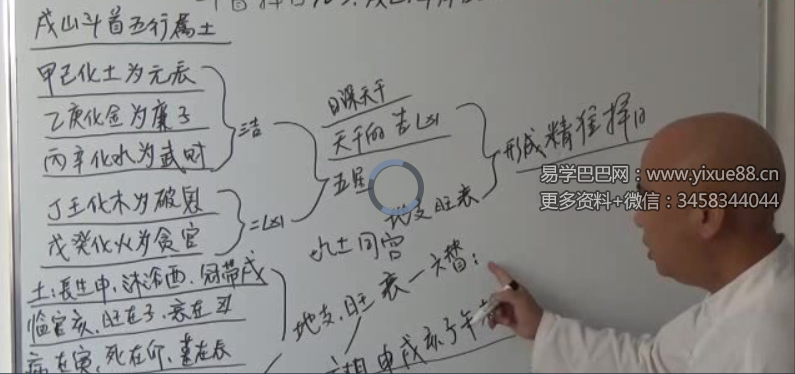 戌山斗首五行属土
甲己化土为元辰
乙庚化金为廉子
丙辛化水为武财
三吉
丁壬化木为破鬼
戊癸化火为贪官
二凶
日课天干
天干的吉凶
五星
地支旺衰
形成精准择日
水土同宫
土:長生申,沐浴酉,冠带戌
临官亥,旺在子,衰在丑
病在寅,死在卯,墓在辰
地支,旺衰一六替:
申戌亥子午
易学巴巴网:www.yixue88.cn
更多资料+微信:3458344044